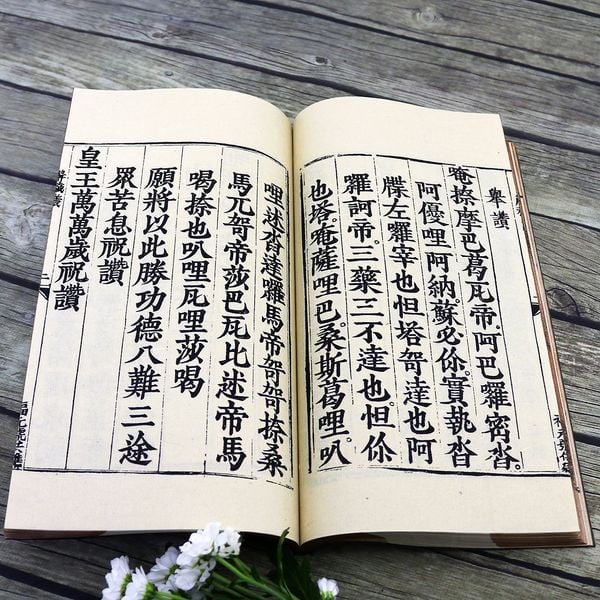 舉讚
唵捺摩巴葛瓦帝。阿巴囉密沓。
阿優哩阿納。蘇必你。實執沓
牒左囉宰也怛塔哿達也阿
囉訶帝。三藥三不達也。怛你
也塔。唵薩哩巴。桑斯葛哩。叭
哩述沓達囉馬帝哿哿捺桑
馬兀哿帝莎巴瓦比述帝馬
喝捺也叭哩瓦哩莎喝
願將以此勝功德八難三途
眾苦息祝讚
皇王萬萬歲祝讚